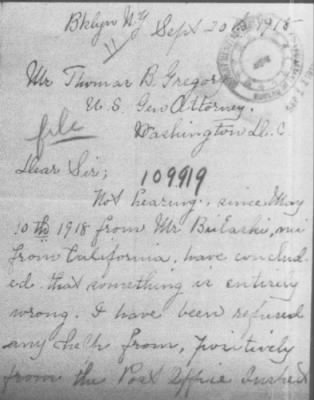 Bklyn N.Y Sept 20th 1918
11
Mr Thomas B. Gregory
U. S. Gen Attorney.
file
Washington D. C
Dear Sir;
109919
Not hearing, since May
10th 1918 from Mr Bielaski,
from California, have conclud-
ed that something is entirely
wrong. I have been refused
any help from, positively
from the Post Office Inspect